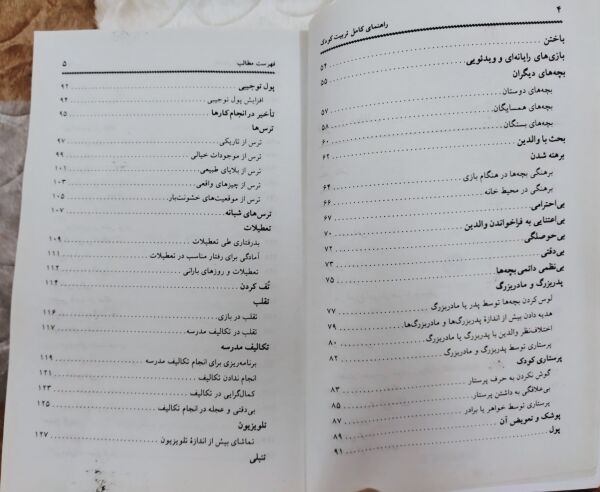 ۴
راهنمای کامل تربیت کودک
باختن ........ ۵۴
بازی‌های رایانه‌ای و ویدئویی ........ ۵۵
بچه‌های دیگران
بچه‌های دوستان ........ ۵۷
بچه‌های همسایگان ........ ۵۸
بچه‌های بستگان ........ ۶۰
بحث با والدین ........ ۶۲
برهنه شدن
برهنگی بچه‌ها در هنگام بازی ........ ۶۴
برهنگی در محیط خانه ........ ۶۶
بی‌احترامی ........ ۶۷
بی‌اعتنایی به فراخواندن والدین ........ ۷۰
بی‌حوصلگی ........ ۷۲
بی‌دقتی ........ ۷۳
بی‌نظمی دائمی بچه‌ها ........ ۷۵
پدربزرگ و مادربزرگ
لوس کردن بچه‌ها توسط پدر یا مادربزرگ ........ ۷۷
هدیه دادن بیش از اندازهٔ پدربزرگ‌ها و مادربزرگ‌ها ........ ۷۹
اختلاف‌نظر والدین با پدربزرگ یا مادربزرگ ........ ۸۰
پرستاری توسط پدربزرگ و مادربزرگ ........ ۸۲
پرستاری کودک
گوش نکردن به حرف پرستار ........ ۸۳
بی‌علاقگی به داشتن پرستار ........ ۸۵
پرستاری توسط خواهر یا برادر ........ ۸۷
پوشک و تعویض آن ........ ۸۹
پول ........ ۹۱
فهرست مطالب ۵
پول توجیبی ........ ۹۲
افزایش پول توجیبی ........ ۹۴
تأخیر در انجام کارها ........ ۹۵
ترس‌ها
ترس از تاریکی ........ ۹۷
ترس از موجودات خیالی ........ ۹۹
ترس از بلایای طبیعی ........ ۱۰۱
ترس از چیزهای واقعی ........ ۱۰۳
ترس از موقعیت‌های خشونت‌بار ........ ۱۰۵
ترس‌های شبانه ........ ۱۰۷
تعطیلات
بدرفتاری طی تعطیلات ........ ۱۰۹
آمادگی برای رفتار مناسب در تعطیلات ........ ۱۱۱
تعطیلات و روزهای بارانی ........ ۱۱۲
تُف کردن ........ ۱۱۴
تقلب
تقلب در بازی ........ ۱۱۶
تقلب در تکالیف مدرسه ........ ۱۱۷
تکالیف مدرسه
برنامه‌ریزی برای انجام تکالیف مدرسه ........ ۱۱۹
انجام ندادن تکالیف ........ ۱۲۱
کمال‌گرایی در تکالیف ........ ۱۲۳
بی‌دقتی و عجله در انجام تکالیف ........ ۱۲۵
تلویزیون
تماشای بیش از اندازهٔ تلویزیون ........ ۱۲۷
تنبلی